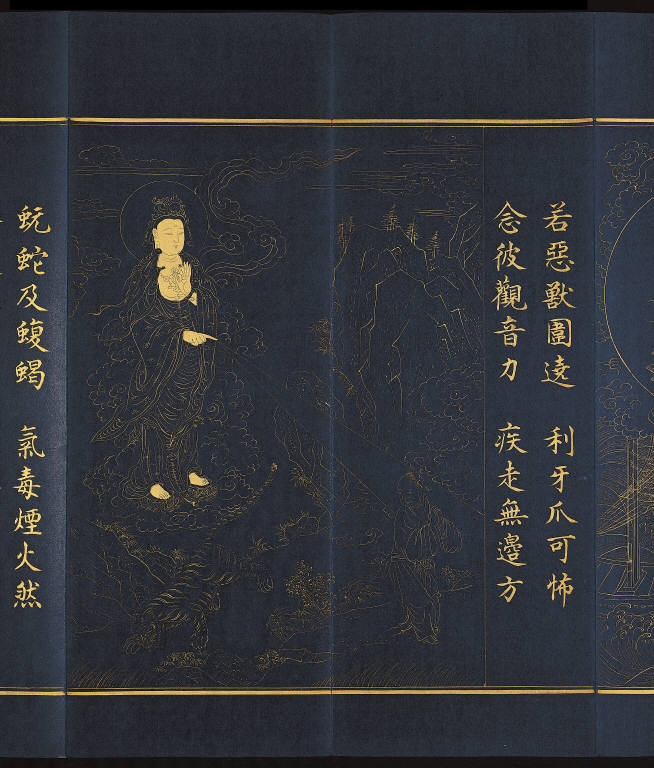 若惡獸圍遶 利牙爪可怖
念彼觀音力 疾走無邊方
蚖蛇及蝮蝎 氣毒煙火然